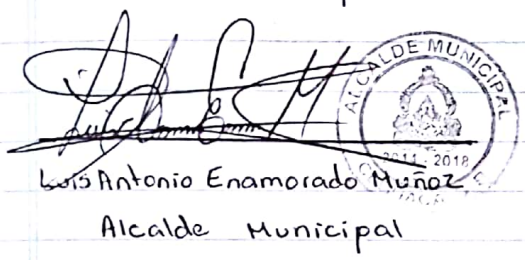 ALCALDE MUNICIPAL
2014 - 2018
Luis Antonio Enamorado Muñoz
Alcalde Municipal